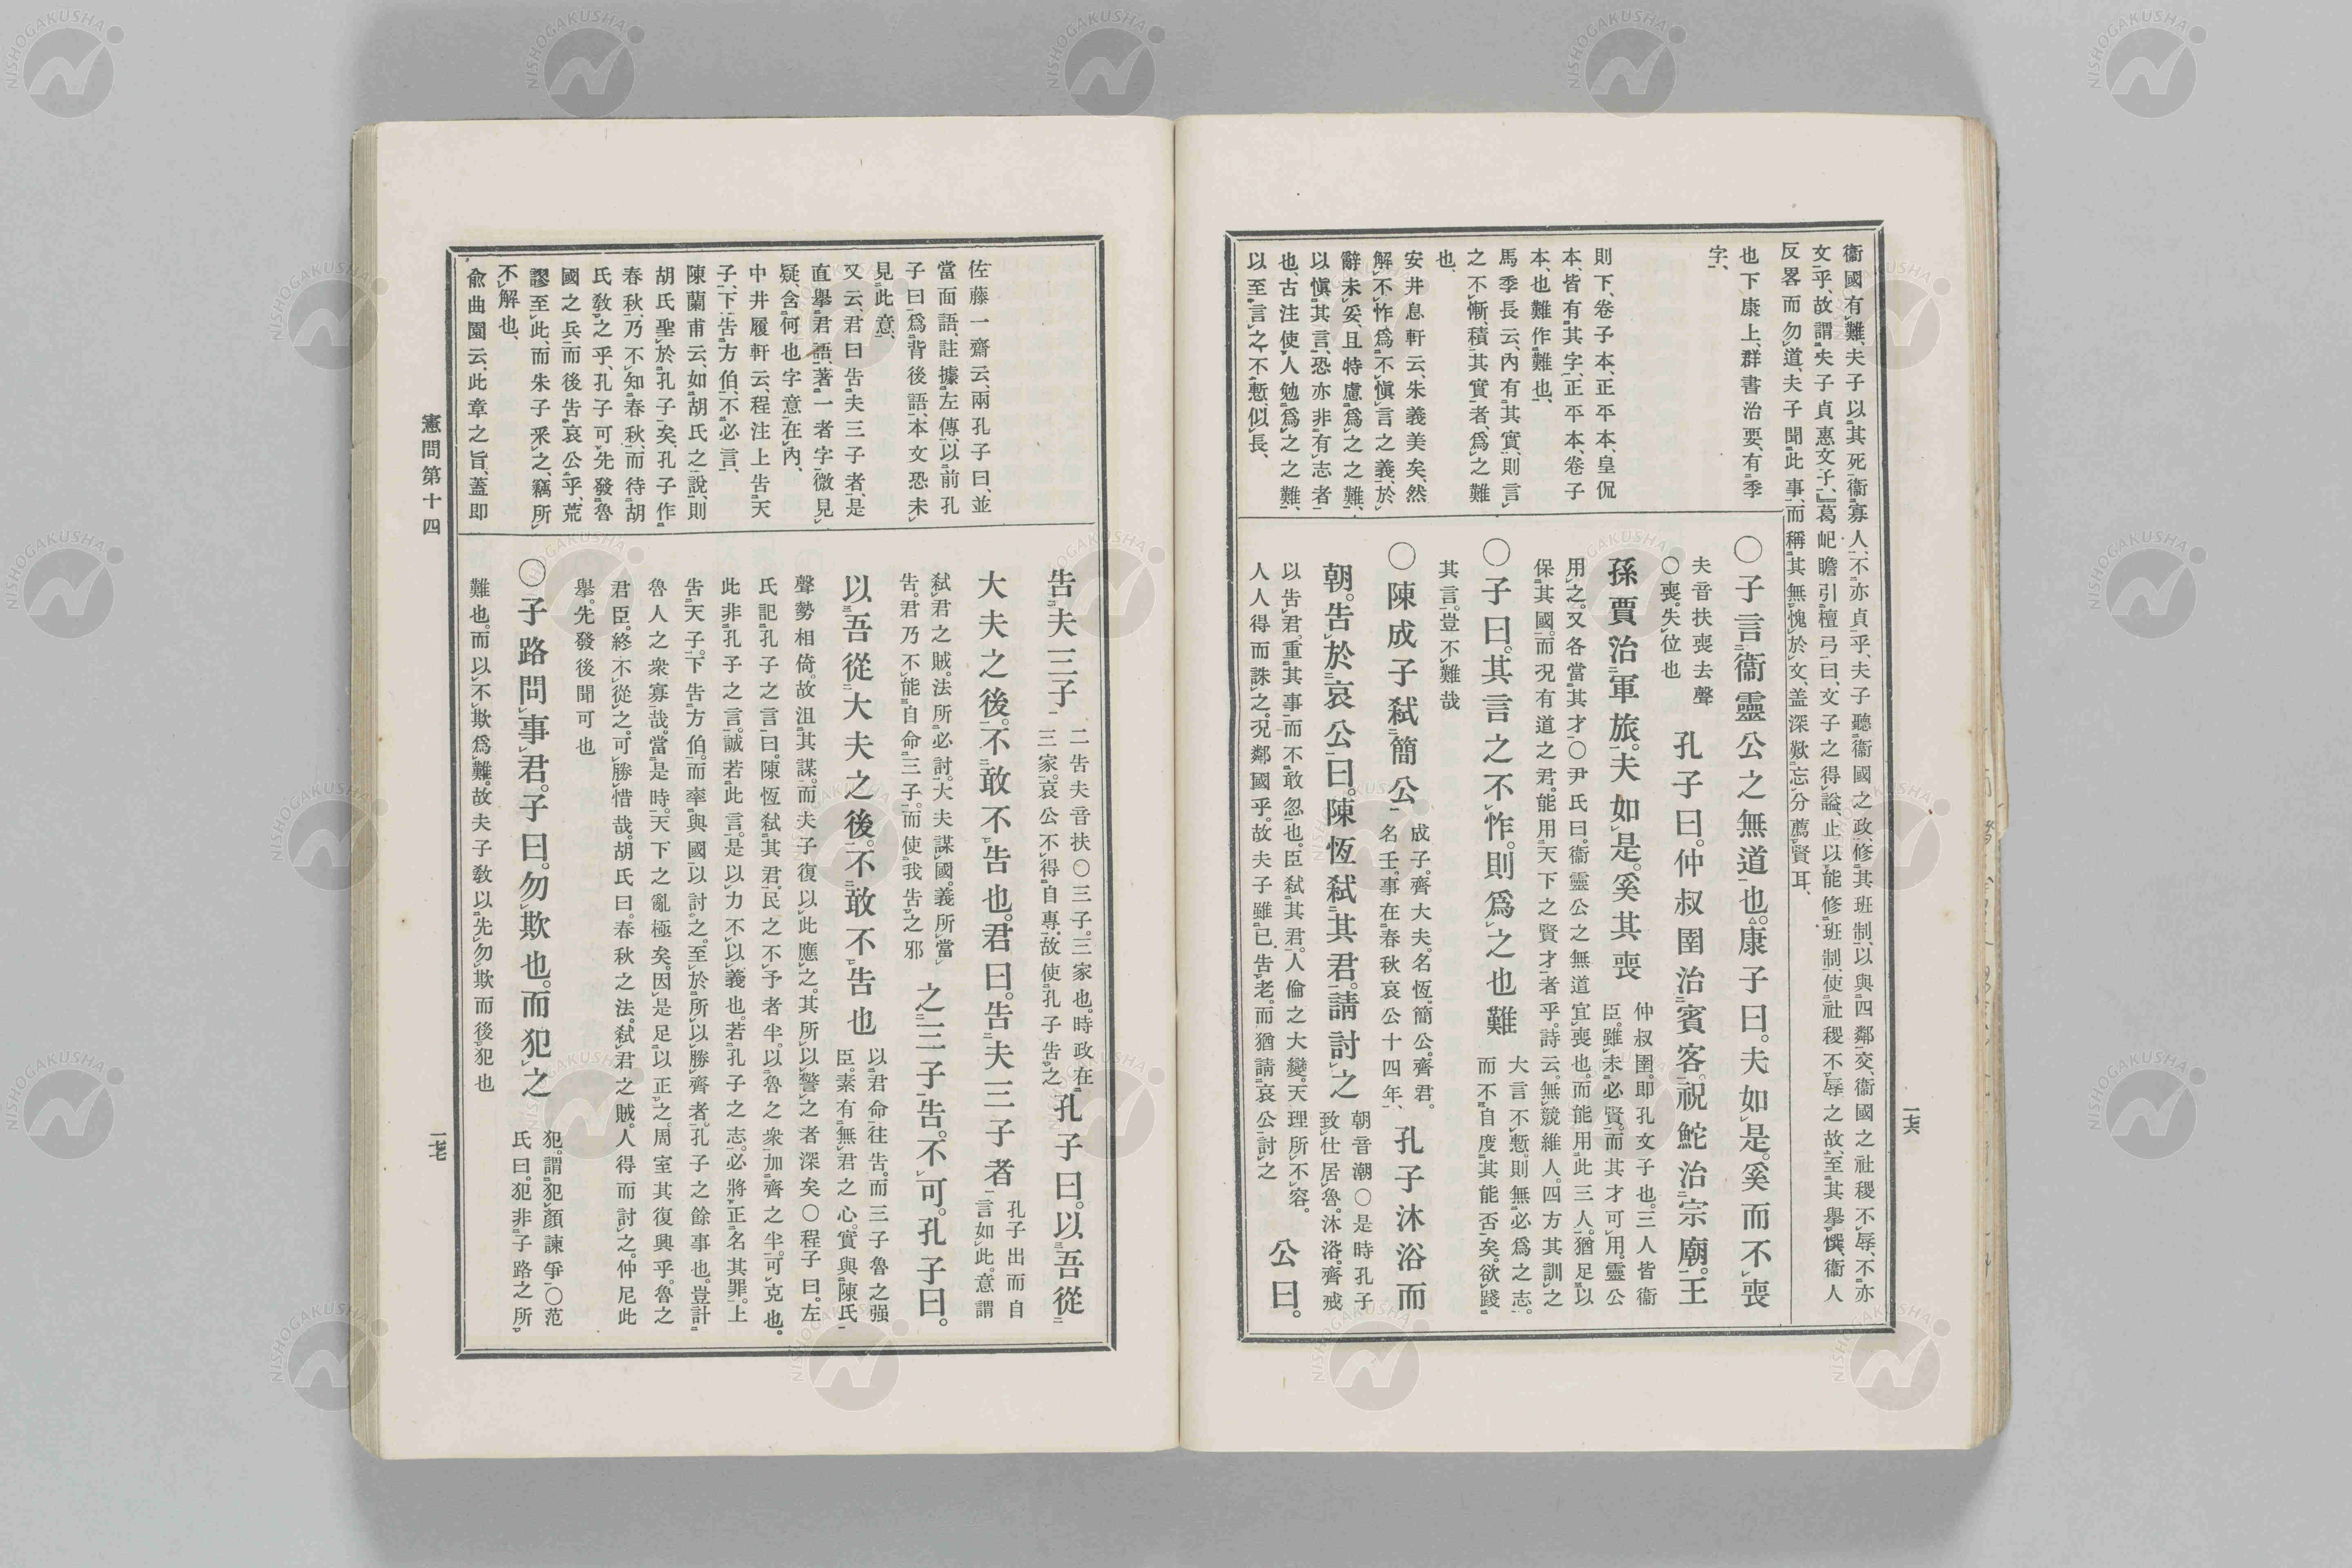 衞國有難、夫子以其死衞寡人、不亦貞乎、夫子聽衞國之政、修其班制、以與四鄰交、衞國之社稷不辱、不亦
文乎、故謂夫子貞惠文子、』葛屺瞻引檀弓曰、文子之得諡、止以能修班制、使社稷不辱之故、至其擧僎、衞人
反畧而勿道、夫子聞此事、而稱其無愧於文、盖深歎忘分薦賢耳、
也下康上、群書治要、有季
字、
則下、卷子本、正平本、皇侃
本、皆有其字、正平本、卷子
本、也難作難也、
馬季長云、內有其實、則言
之不慚、積其實者、爲之難
也、
安井息軒云、朱義美矣、然
解不怍爲不愼言之義、於
辭未妥、且特慮爲之之難、
以愼其言、恐亦非有志者
也、古注使人勉爲之之難、
以至言之不慙、似長、
○子言衞靈公之無道也。康子曰。夫如是。奚而不喪
夫音扶喪去聲
○喪。失位也
孔子曰。仲叔圉治賓客。祝鮀治宗廟。王
孫賈治軍旅。夫如是。奚其喪
仲叔圉。即孔文子也。三人皆衞
臣。雖未必賢。而其才可用。靈公
用之。又各當其才○尹氏曰。衞靈公之無道宜喪也。而能用此三人。猶足以
保其國。而况有道之君。能用天下之賢才者乎。詩云。無競維人。四方其訓之
○子曰。其言之不怍。則爲之也難
大言不慙。則無必爲之志。
而不自度其能否矣。欲踐
其言。豈不難哉
○陳成子弑簡公
成子。齊大夫。名恆。簡公。齊君。
名壬。事在春秋哀公十四年、
孔子沐浴而
朝。告於哀公曰。陳恆弑其君。請討之
朝音潮○是時孔子
致仕居魯。沐浴。齊戒
以告君。重其事而不敢忽也。臣弑其君。人倫之大變。天理所不容。
人人得而誅之。况鄰國乎。故夫子雖已告老。而猶請哀公討之
公曰。
一七六
告夫三子
二告夫音扶○三子。三家也。時政在
三家。哀公不得自專。故使孔子告之
孔子曰。以吾從
大夫之後。不敢不告也。君曰。告夫三子者
孔子出而自
言如此。意謂
弑君之賊。法所必討。大夫謀國。義所當
告。君乃不能自命三子。而使我告之邪
之三子告。不可。孔子曰。
以吾從大夫之後。不敢不告也
以君命往告。而三子魯之强
臣。素有無君之心。實與陳氏
聲勢相倚。故沮其謀。而夫子復以此應之。其所以警之者深矣○程子曰。左
氏記孔子之言曰。陳恆弑其君。民之不予者半。以魯之衆。加齊之半。可克也。
此非孔子之言。誠若此言。是以力不以義也。若孔子之志。必將正名其罪。上
告天子。下告方伯。而率與國以討之。至於所以勝齊者。孔子之餘事也。豈計
魯人之衆寡哉。當是時。天下之亂極矣。因是足以正之。周室其復興乎。魯之
君臣。終不從之。可勝惜哉。胡氏曰。春秋之法。弑君之賊。人得而討之。仲尼此
擧。先發後聞可也
○子路問事君。子曰。勿欺也。而犯之
犯。謂犯顏諫爭○范
氏曰。犯非子路之所
難也。而以不欺爲難。故夫子敎以先勿欺而後犯也
佐藤一齋云、兩孔子曰、並
當面語、註據左傳、以前孔
子曰、爲背後語、本文恐未
見此意、
又云、君曰告夫三子者、是
直擧君語、著一者字、微見
疑、含何也字意在內、
中井履軒云、程注上告天
子、下告方伯、不必言、
陳蘭甫云、如胡氏之說、則
胡氏聖於孔子矣、孔子作
春秋、乃不知春秋、而待胡
氏敎之乎、孔子可先發魯
國之兵、而後告哀公乎、荒
謬至此、而朱子釆之、竊所
不解也、
兪曲園云、此章之旨、蓋即
憲問第十四
一七七